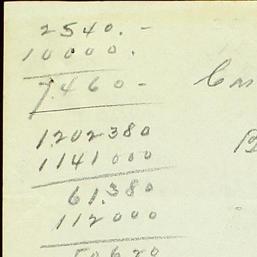 2540.-
10000.
7.460-
Ca
1.202380
1141000
61.380
112000
50620